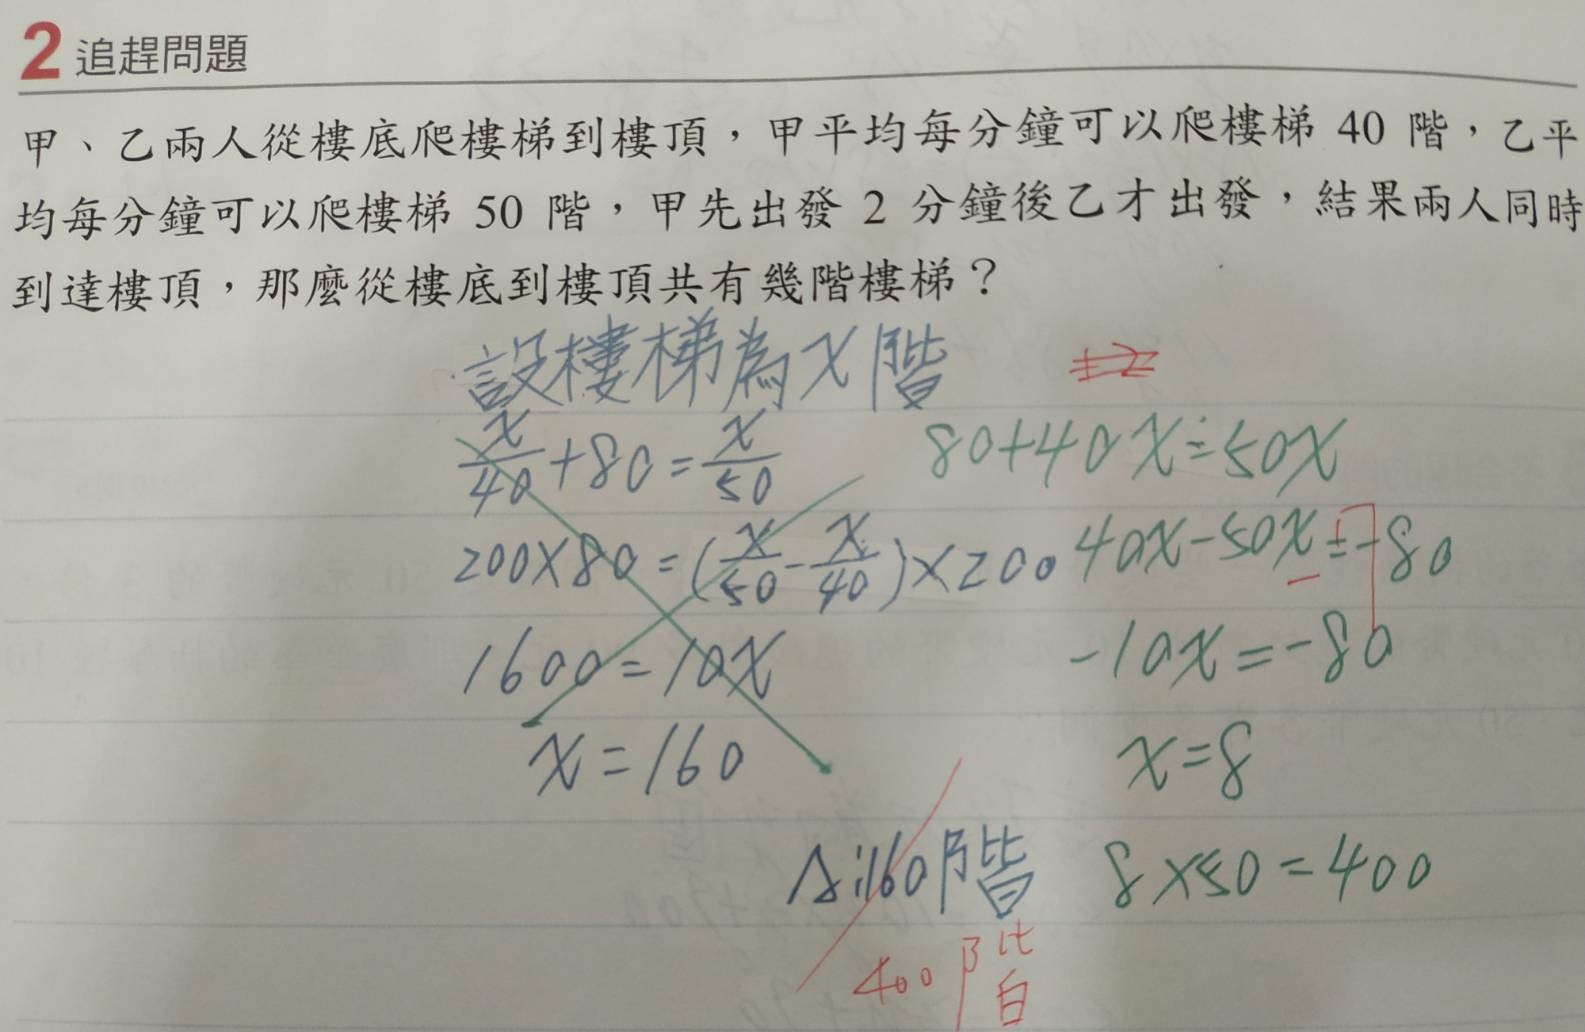 2 追趕問題
甲、乙兩人從樓底爬樓梯到樓頂，甲平均每分鐘可以爬樓梯 40 階，乙平
均每分鐘可以爬樓梯 50 階，甲先出發 2 分鐘後乙才出發，結果兩人同時
到達樓頂，那麼從樓底到樓頂共有幾階樓梯？
設樓梯為x階
x/40+80=x/50
200×80=(x/50-x/40)×200
1600=10x
x=160
A:160階
400階
80+40x=50x
40x-50x=-80
-10x=-80
x=8
8×50=400